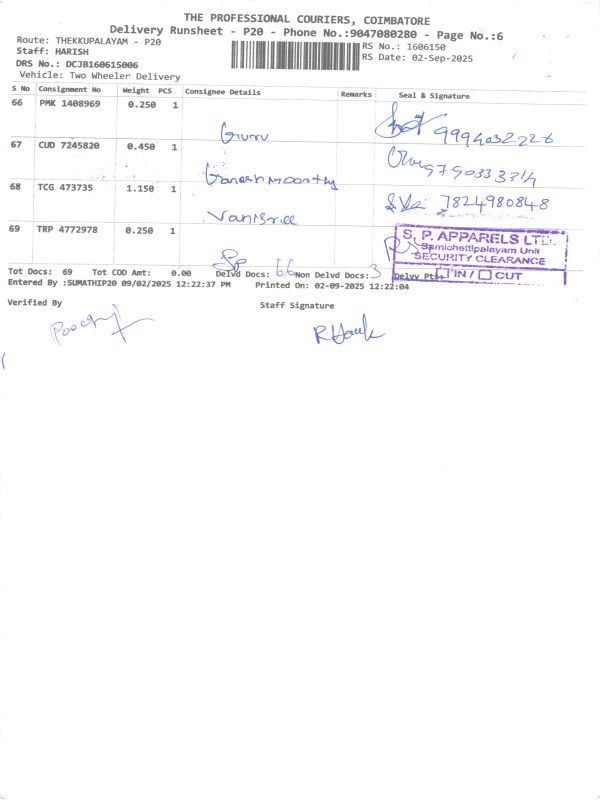 THE PROFESSIONAL COURIERS, COIMBATORE
Delivery Runsheet - P20 - Phone No.:9047080280 - Page No.:6
Route: THEKKUPALAYAM - P20
Staff: HARISH
DRS No.: DCJB160615006
Vehicle: Two Wheeler Delivery
RS No.: 1606150
RS Date: 02-Sep-2025
S No Consignment No Weight PCS Consignee Details Remarks Seal & Signature
66 PMK 1408969 0.250 1
Guru 9994032226
67 CUD 7245820 0.450 1
Ganesh Moorthy 9790333314
68 TCG 473735 1.150 1
Vanisree 7824980848
69 TRP 4772978 0.250 1
SP
S. P. APPARELS LTD.
Samichettipalayam Unit
SECURITY CLEARANCE
IN / OUT
Tot Docs: 69 Tot COD Amt: 0.00 Delvd Docs: 66 Non Delvd Docs: 3 Delvy Pts:
Entered By :SUMATHIP20 09/02/2025 12:22:37 PM Printed On: 02-09-2025 12:22:04
Verified By Staff Signature